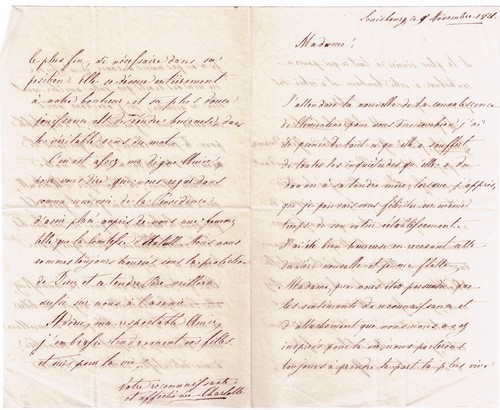 Louisbourg ce 9 Décembre 1821.
Madame!
J'attendais la nouvelle de la convalescence
de Clementine pour vous dire combien j'ai
de peine de tout ce qu'elle a souffert
de toutes les inquiétudes qu'elle a du
donner à sa tendre mère, lorsque j'appris
que je pouvais vous féliciter en même
temps de son entier rétablissement.
J'ai été bien heureuse en recevant cette
dernière nouvelle et je me flatte,
Madame, que vous êtes persuadée que
les sentiments de reconnaissance et
d'attachement que vous nous avez
inspirés pour la vie, nous portrons
toujours à prendre la part la plus vive
le plus fin, si nécessaire dans sa
position. Elle se dévoue entièrement
à notre bonheur et sa plus douce
jouissance est de rendre heureuse dans
le véritable sens du mot.
C'en est assez, ma digne Amie,
pour vous dire que nous regardons
comme une voie de la Providence
d'avoir placé auprès de nous une femme
telle que la Comtesse d' Nous nous
sommes toujours trouvés sous la protection
de Dieu et ce tendre Père veillera
aussi sur nous à l'avenir.
Adieu, ma respectable Amie,
j'embrasse tendrement vos filles
et suis pour la vie
Votre reconnaissante
et affectionnée Charlotte